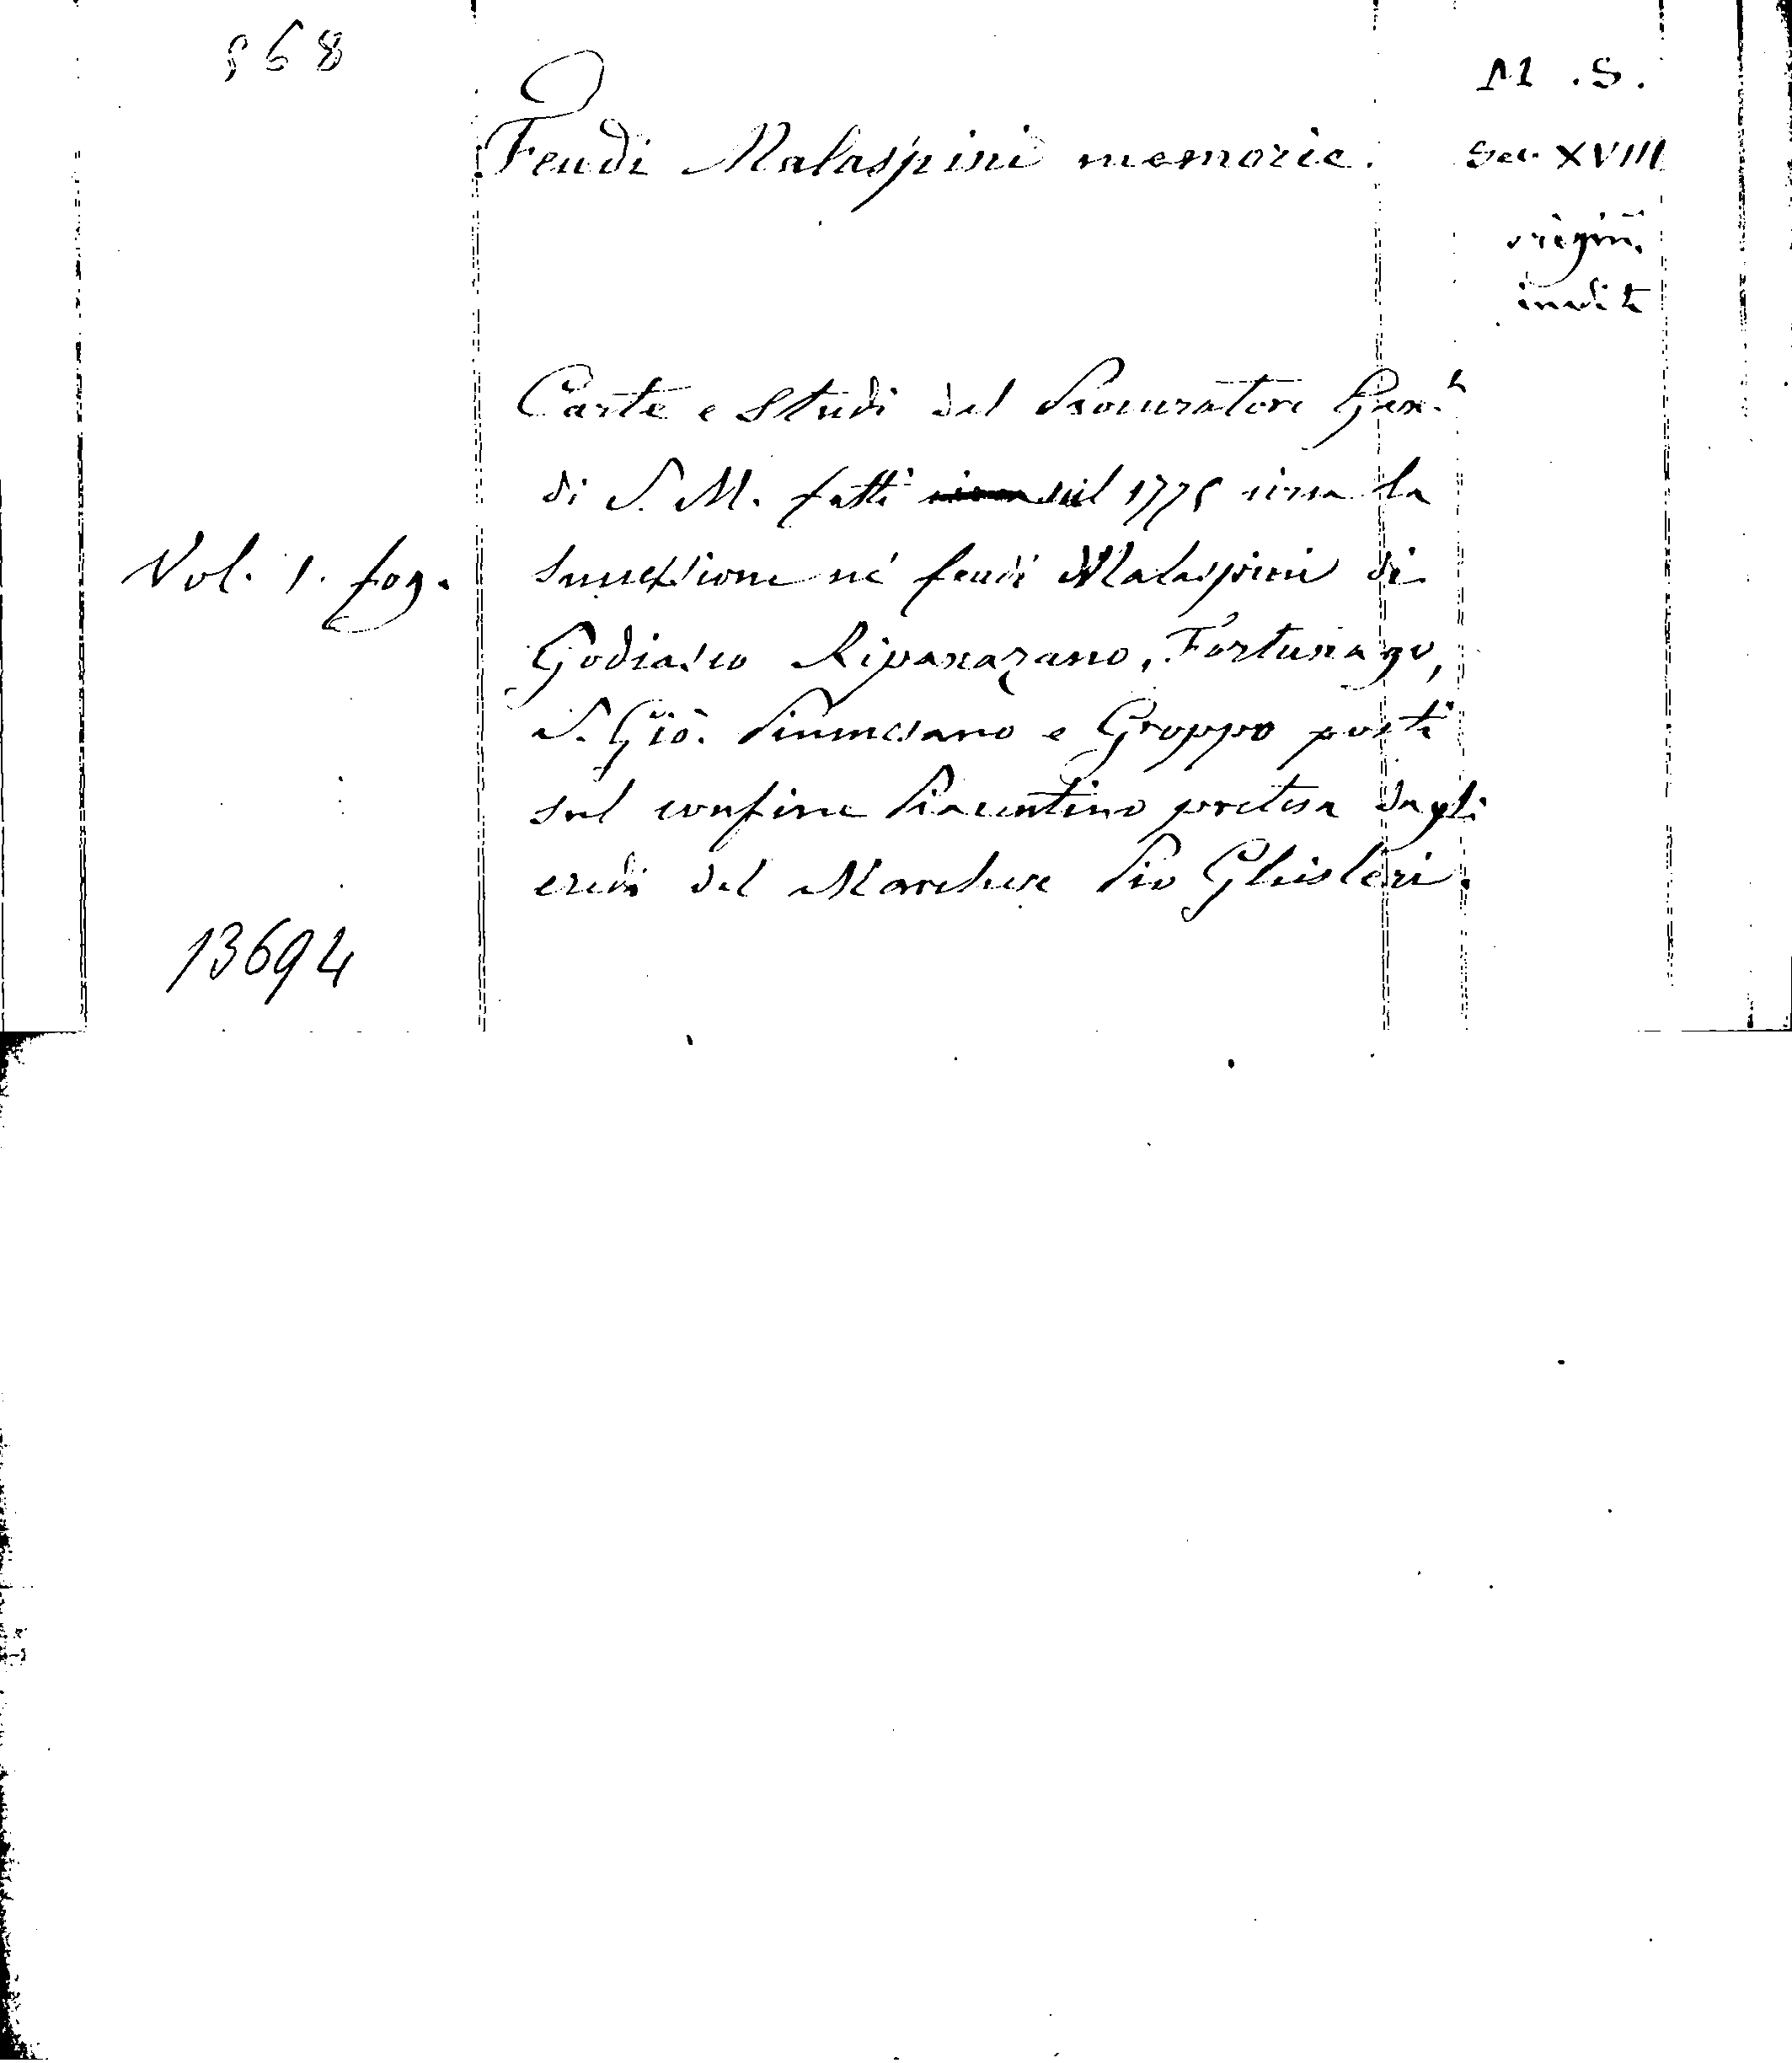 868
M. S.
Feudi Malaspini memorie.
Sec. XVIII
origin.
inedite
Carte e Studi del Procuratore Gen.
di S. M. fatti nel 1775 circa la
Vol. 1. fog.
successione ne' feudi Malaspini di
Godiasco Rivanazano, Fortunago,
S. Gio. Piumesano e Groppo posti
sul confine Piacentino pretesa dagli
eredi del Marchese Pio Ghisleri.
13694